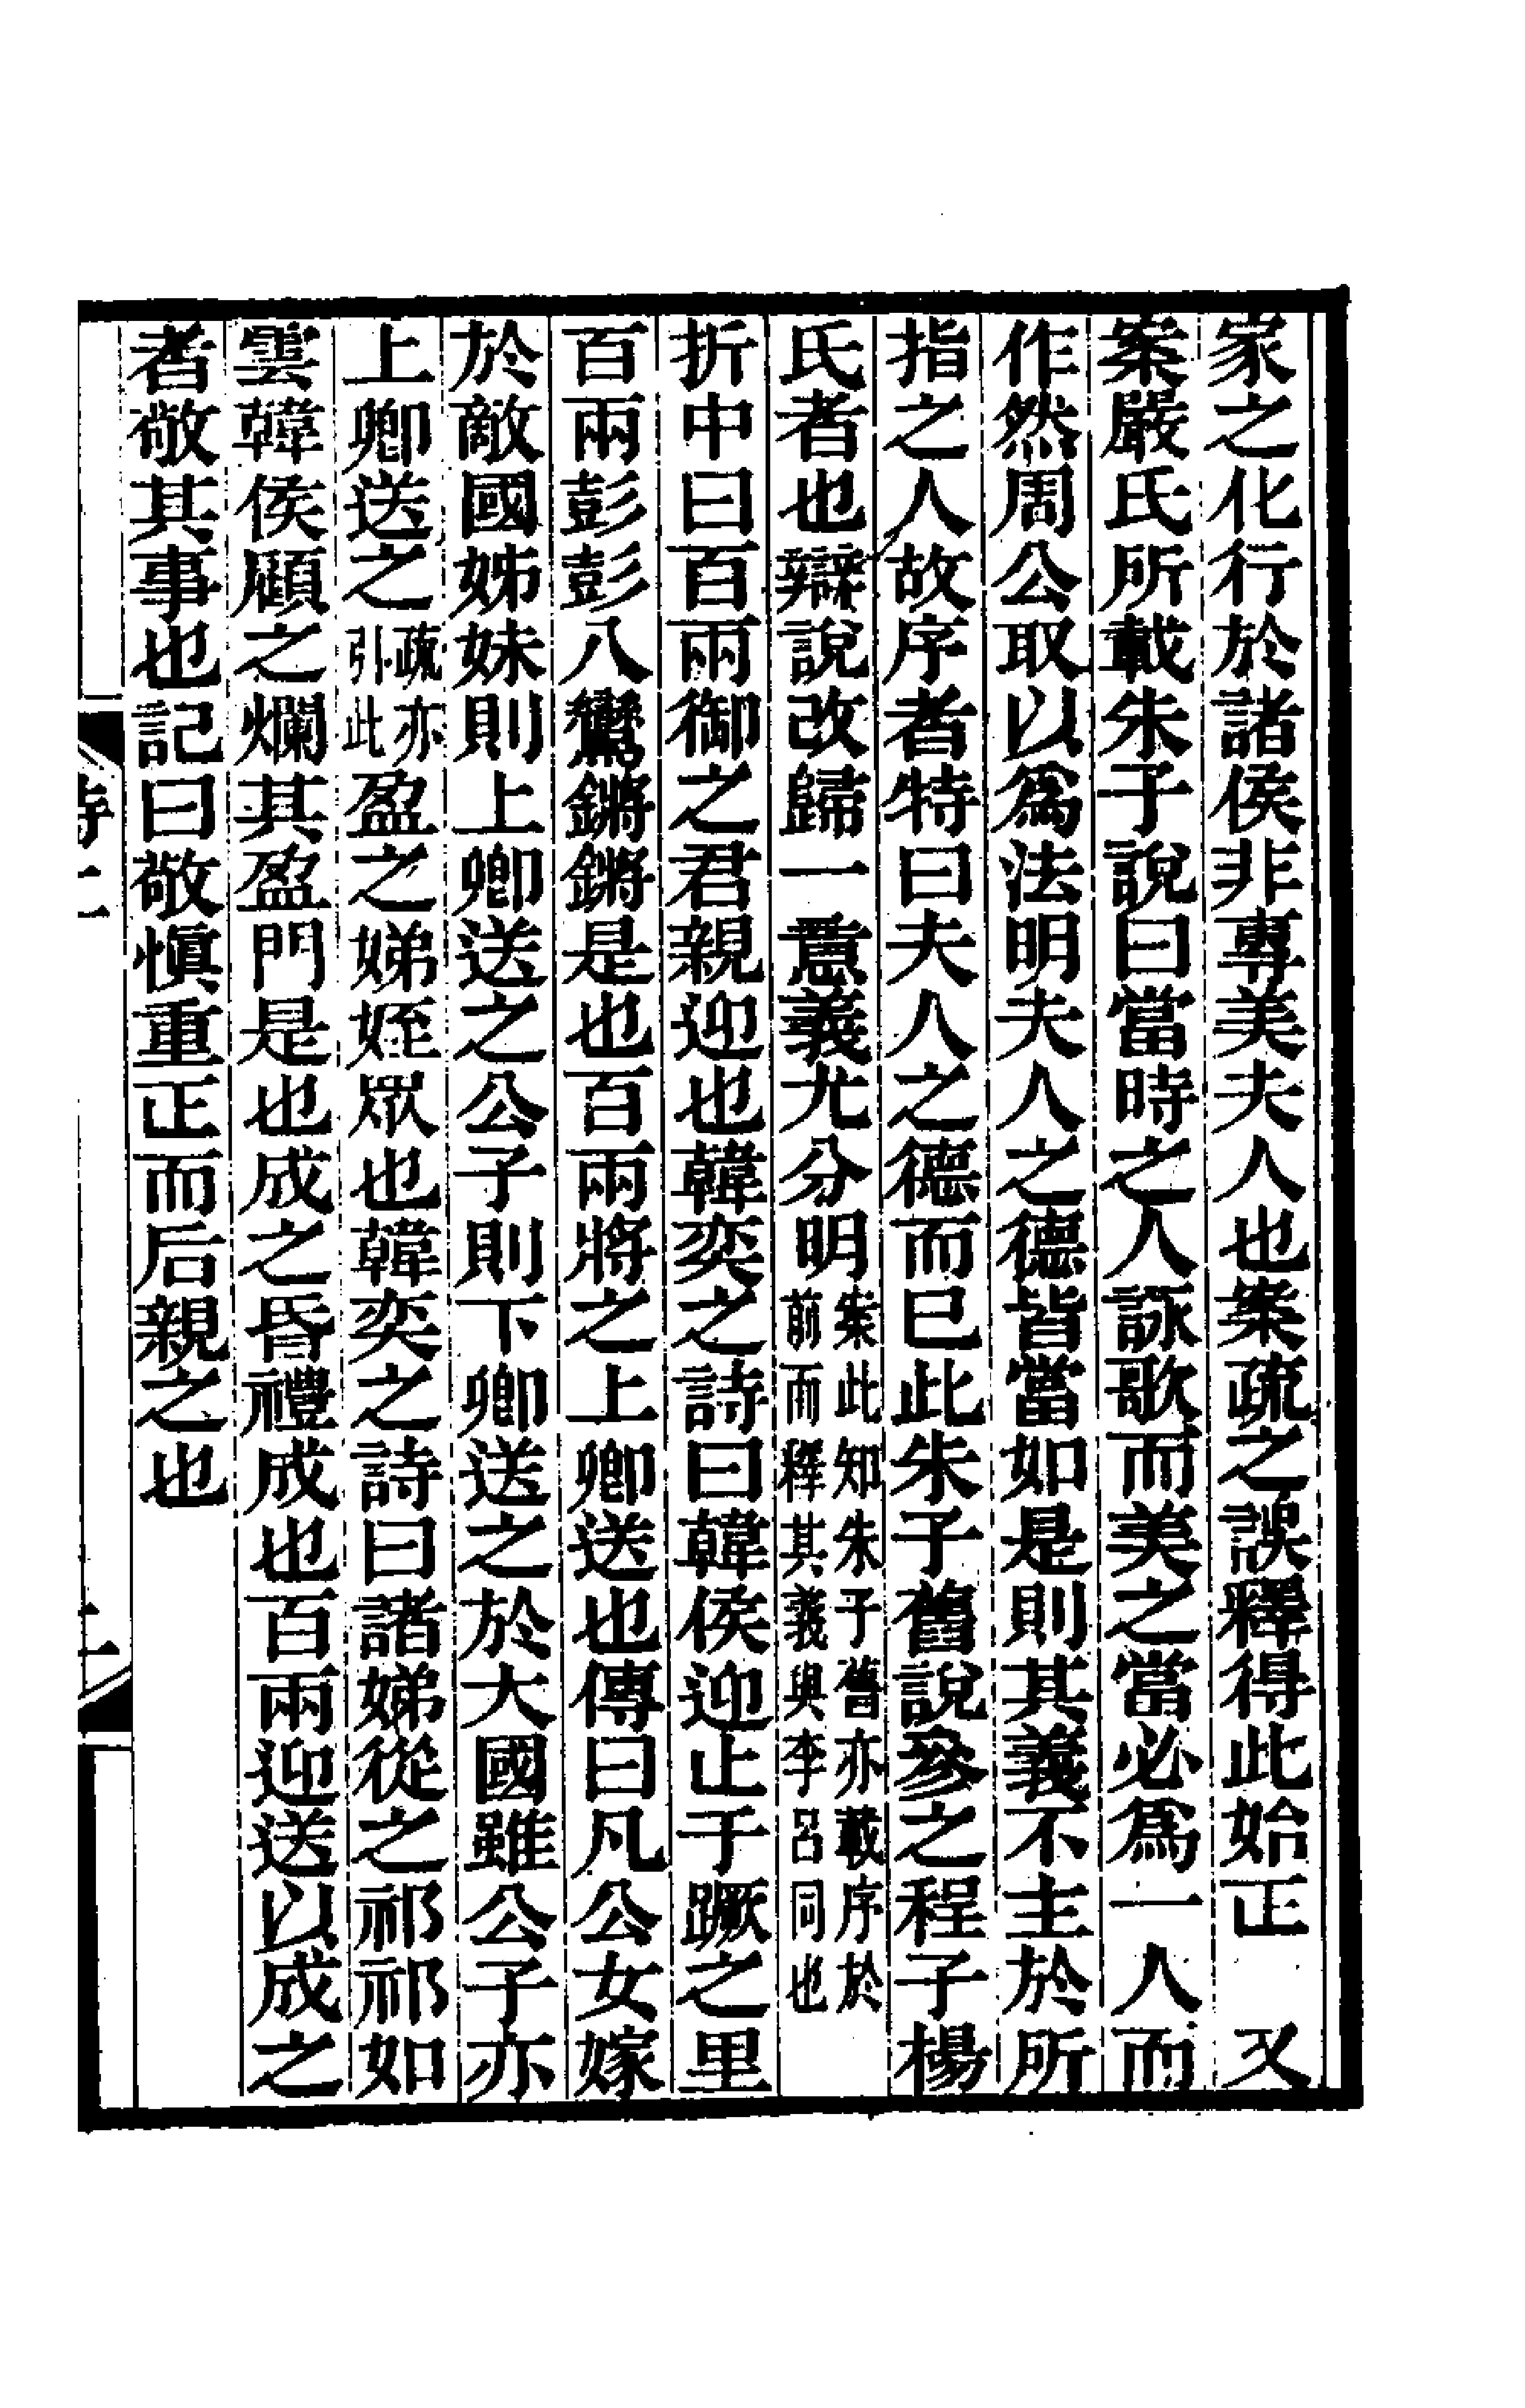 家之化行於諸侯非專美夫人也案疏之誤釋得此始正　又
案嚴氏所載朱子說曰當時之人詠歌而美之當必爲一人而
作然周公取以爲法明夫人之德皆當如是則其義不主於所
指之人故序者特曰夫人之德而已此朱子舊說參之程子楊
氏者也辯說改歸一意義尤分明案此知朱子舊亦載序於前而釋其義與李呂同也
折中曰百兩御之君親迎也韓奕之詩曰韓侯迎止于蹶之里
百兩彭彭八鸞鏘鏘是也百兩將之上卿送也傳曰凡公女嫁
於敵國姊妹則上卿送之公子則下卿送之於大國雖公子亦
上卿送之疏亦引此盈之娣姪眾也韓奕之詩曰諸娣從之祁祁如
雲韓侯顧之爛其盈門是也成之昏禮成也百兩迎送以成之
者敬其事也記曰敬慎重正而后親之也